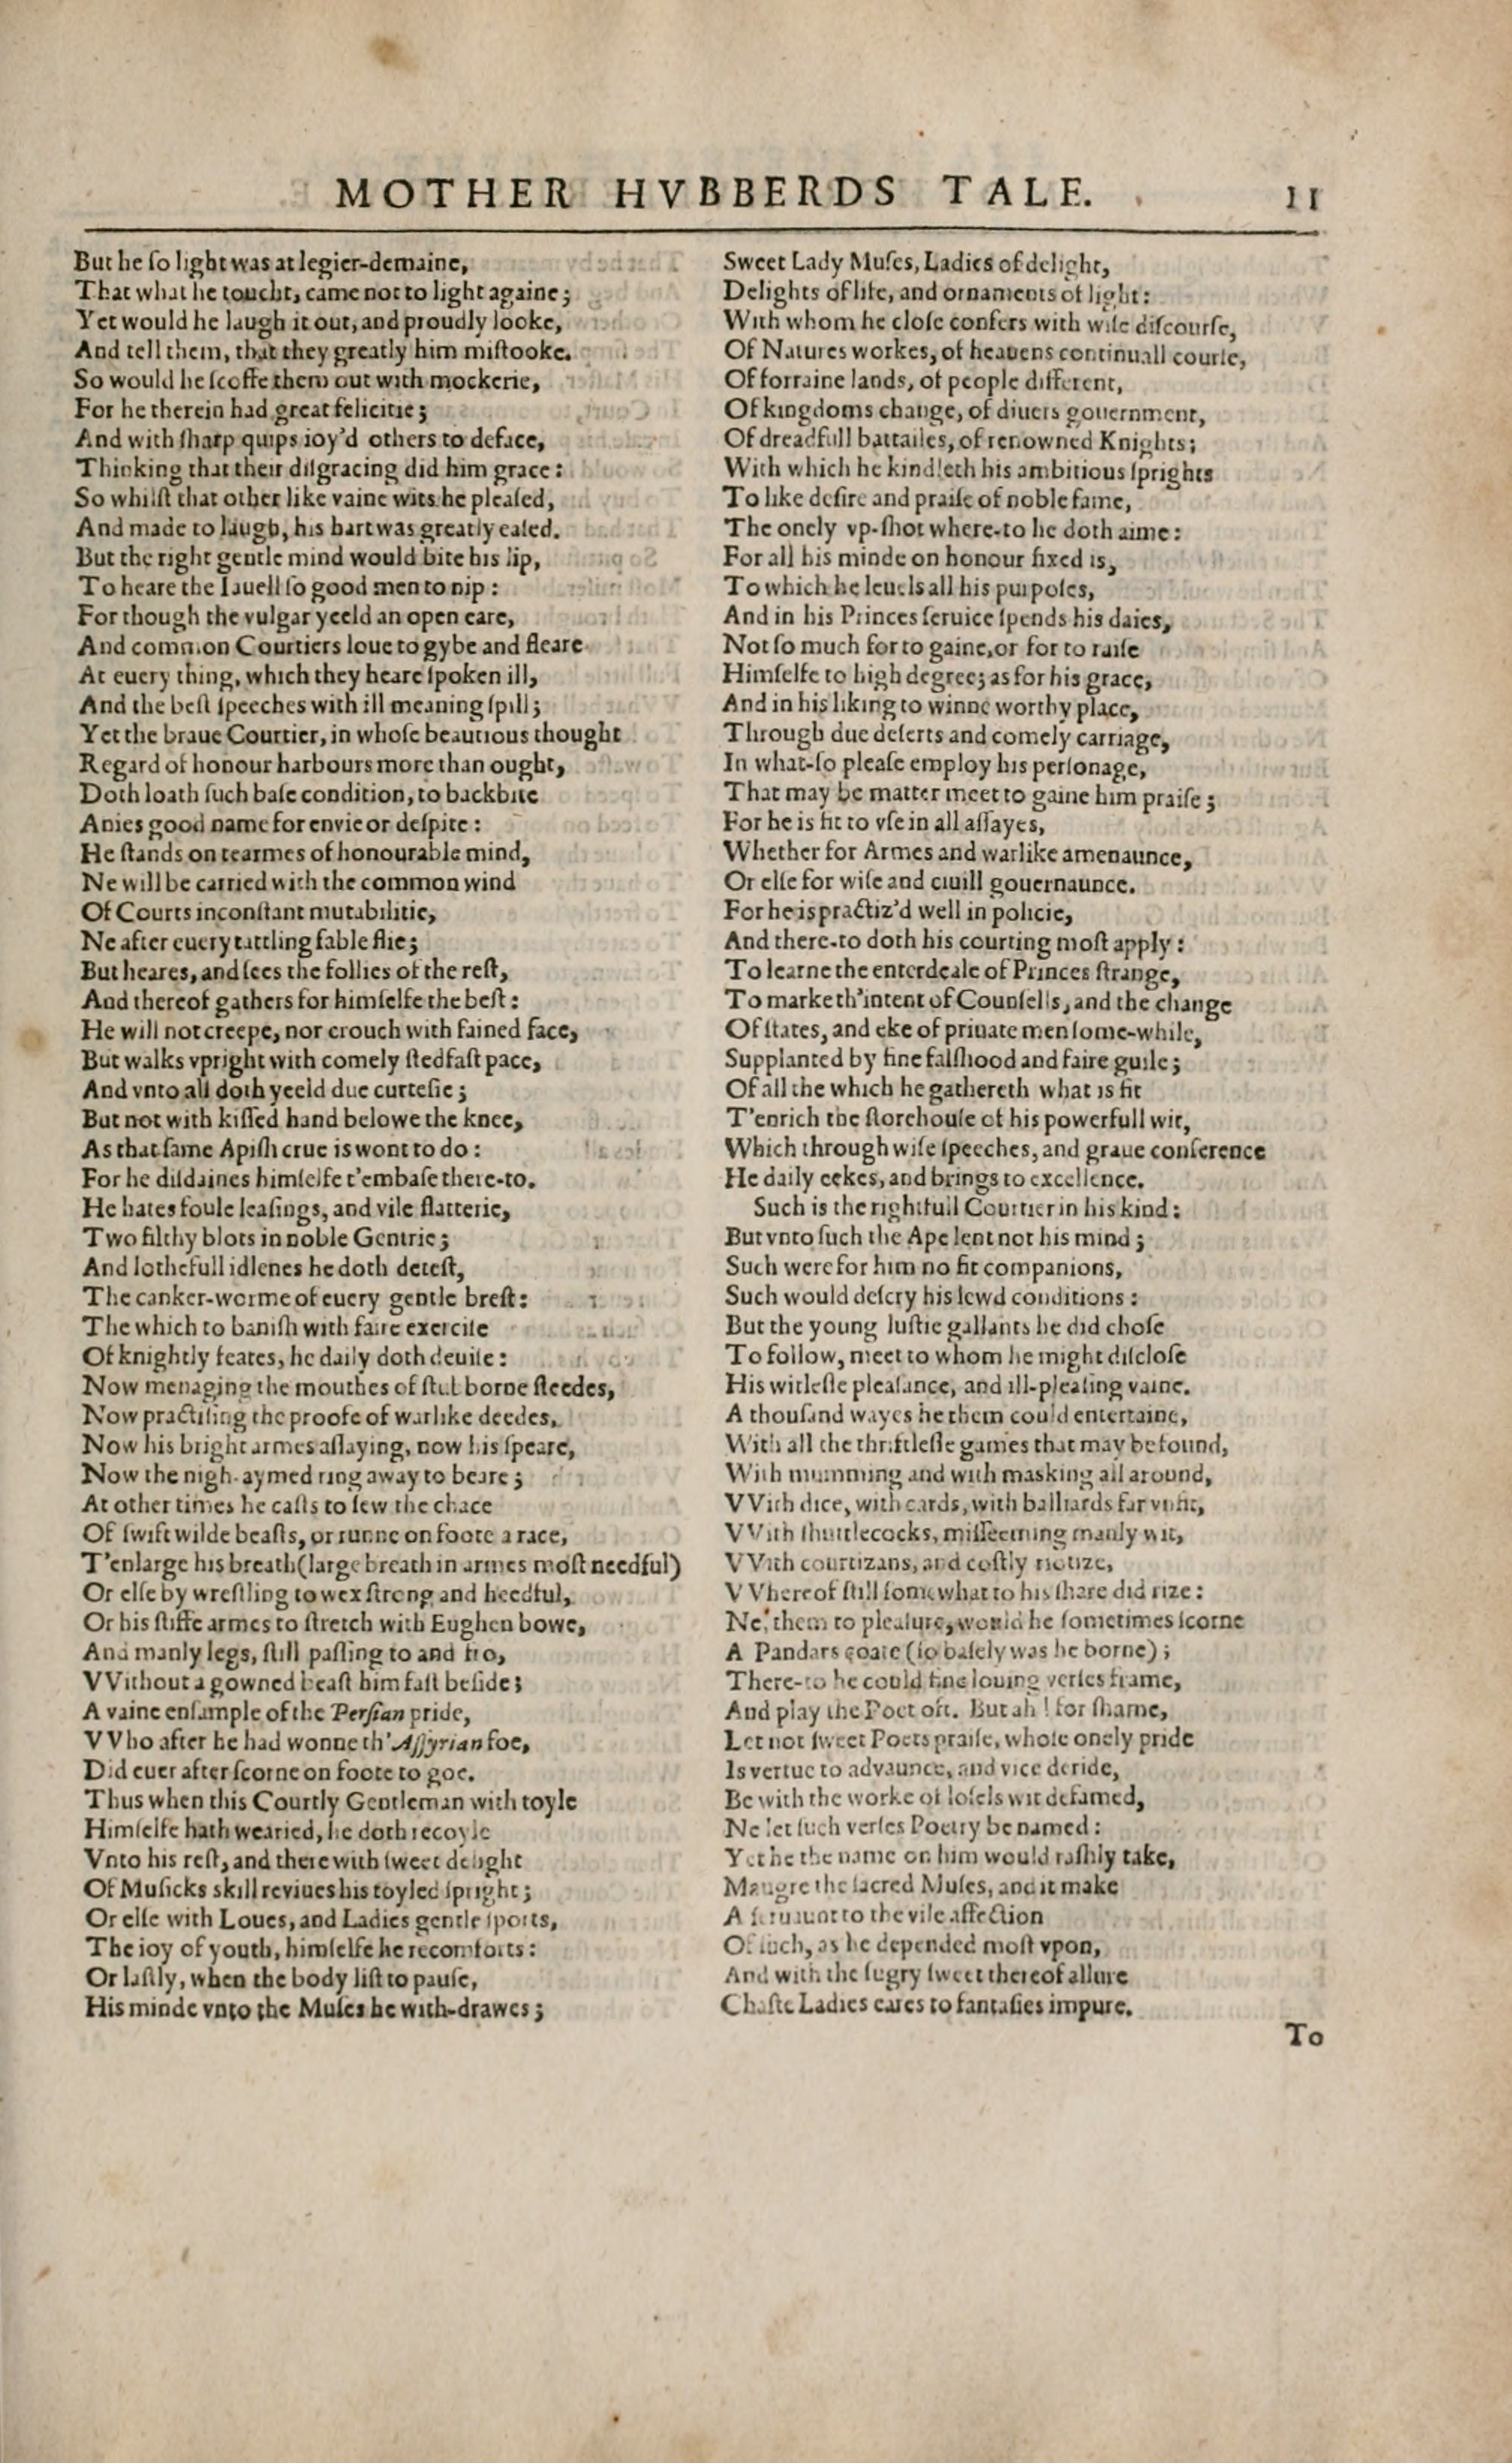 MOTHER HVBBERDS TALE. 11
But he ſo light was at legier-demaine,
That what he toucht, came not to light againe;
Yet would he laugh it out, and proudly looke,
And tell them, that they greatly him miſtooke.
So would he ſcoffe them out with mockerie,
For he therein had great felicitie;
And with ſharp quips ioy'd others to deface,
Thinking that their diſgracing did him grace:
So whilſt that other like vaine wits he pleaſed,
And made to laugh, his hart was greatly eaſed.
But the right gentle mind would bite his lip,
To heare the Iauell ſo good men to nip:
For though the vulgar yeeld an open eare,
And common Courtiers loue to gybe and fleare
At euery thing, which they heare ſpoken ill,
And the beſt ſpeeches with ill meaning ſpill;
Yet the braue Courtier, in whoſe beautious thought
Regard of honour harbours more than ought,
Doth loath ſuch baſe condition, to backbite
Anies good name for envie or deſpite:
He ſtands on tearmes of honourable mind,
Ne will be carried with the common wind
Of Courts inconſtant mutabilitie,
Ne after euery tattling fable flie;
But heares, and ſees the follies of the reſt,
And thereof gathers for himſelfe the beſt:
He will not creepe, nor crouch with fained face,
But walks vpright with comely ſtedfaſt pace,
And vnto all doth yeeld due curteſie;
But not with kiſſed hand belowe the knee,
As that ſame Apiſh crue is wont to do:
For he diſdaines himſelfe t'embaſe there-to.
He hates foule leaſings, and vile flatterie,
Two filthy blots in noble Gentrie;
And lothefull idlenes he doth deteſt,
The canker-worme of euery gentle breſt:
The which to baniſh with faire exerciſe
Of knightly feates, he daily doth deuiſe:
Now menaging the mouthes of ſtubborne ſteedes,
Now practiſing the proofe of warlike deedes,
Now his bright armes aſſaying, now his ſpeare,
Now the nigh-aymed ring away to beare;
At other times he caſts to ſew the chace
Of ſwift wilde beaſts, or runne on foote a race,
T'enlarge his breath (large breath in armes moſt needful)
Or elſe by wreſtling to wex ſtrong and heedful,
Or his ſtiffe armes to ſtretch with Eughen bowe,
And manly legs, ſtill paſſing to and fro,
VVithout a gowned beaſt him faſt beſide;
A vaine enſample of the Perſian pride,
VVho after he had wonne th'Aſſyrian foe,
Did euer after ſcorne on foote to goe.
Thus when this Courtly Gentleman with toyle
Himſelfe hath wearied, he doth recoyle
Vnto his reſt, and there with ſweet delight
Of Muſicks skill reviues his toyled ſpright;
Or elſe with Loues, and Ladies gentle ſports,
The ioy of youth, himſelfe he recomforts:
Or laſtly, when the body liſt to pauſe,
His minde vnto the Muſes he with-drawes;
Sweet Lady Muſes, Ladies of delight,
Delights of life, and ornaments of light:
With whom he cloſe confers with wiſe diſcourſe,
Of Natures workes, of heauens continuall courſe,
Of forraine lands, of people different,
Of kingdoms change, of diuers gouernment,
Of dreadfull battailes, of renowned Knights;
With which he kindleth his ambitious ſprights
To like deſire and praiſe of noble fame,
The onely vp-ſhot where-to he doth aime:
For all his minde on honour fixed is,
To which he leuels all his purpoſes,
And in his Princes ſeruice ſpends his daies,
Not ſo much for to gaine, or for to raiſe
Himſelfe to high degree; as for his grace,
And in his liking to winne worthy place,
Through due deſerts and comely carriage,
In what-ſo pleaſe employ his perſonage,
That may be matter meet to gaine him praiſe;
For he is fit to vſe in all aſſayes,
Whether for Armes and warlike amenaunce,
Or elſe for wiſe and ciuill gouernaunce.
For he is practiz'd well in policie,
And there-to doth his courting moſt apply:
To learne the enterdeale of Princes ſtrange,
To marke th'intent of Counſells, and the change
Of ſtates, and eke of priuate men ſome-while,
Supplanted by fine falſhood and faire guile;
Of all the which he gathereth what is fit
T'enrich the ſtorehouſe of his powerfull wit,
Which through wiſe ſpeeches, and graue conference
He daily eekes, and brings to excellence.
Such is the rightfull Courtier in his kind:
But vnto ſuch the Ape lent not his mind;
Such were for him no fit companions,
Such would deſcry his lewd conditions:
But the young luſtie gallants he did choſe
To follow, meet to whom he might diſcloſe
His witleſſe pleaſance, and ill-pleaſing vaine.
A thouſand wayes he them could entertaine,
With all the thriftleſſe games that may be found,
With mumming and with masking all around,
VVith dice, with cards, with balliards far vnfit,
VVith ſhuttlecocks, miſſeeming manly wit,
VVith courtizans, and coſtly riotize,
VVhereof ſtill ſomewhat to his ſhare did rize:
Ne, them to pleaſure, would he ſometimes ſcorne
A Pandars coate (ſo baſely was he borne);
There-to he could fine louing verſes frame,
And play the Poet oft. But ah! for ſhame,
Let not ſweet Poets praiſe, whoſe onely pride
Is vertue to advaunce, and vice deride,
Be with the worke of loſels wit defamed,
Ne let ſuch verſes Poetry be named:
Yet he the name on him would raſhly take,
Maugre the ſacred Muſes, and it make
A ſeruant to the vile affection
Of ſuch, as he depended moſt vpon,
And with the ſugry ſweet thereof allure
Chaſte Ladies eares to fantaſies impure.
To